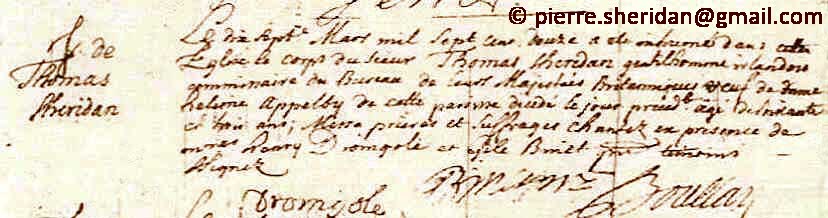 © pierre.sheridan@gmail.com
de
Thomas
Sheridan
Le dix Sept.e Mars mil Sept cens douze a ete inhumé dans cette
Eglise le corps du Sieur Thomas Sheridan gentilhomme irlandois
commissaire du Bureau de leurs Majestées Britanniques veuf de dame
helene Appelby de cette paroisse decidé le jour préced.t agé de soixante
et trois ans; Messe prieres et Suffrages chantez en presence de
Henry Dromgole et Briet temoins
Signez
Dromgole